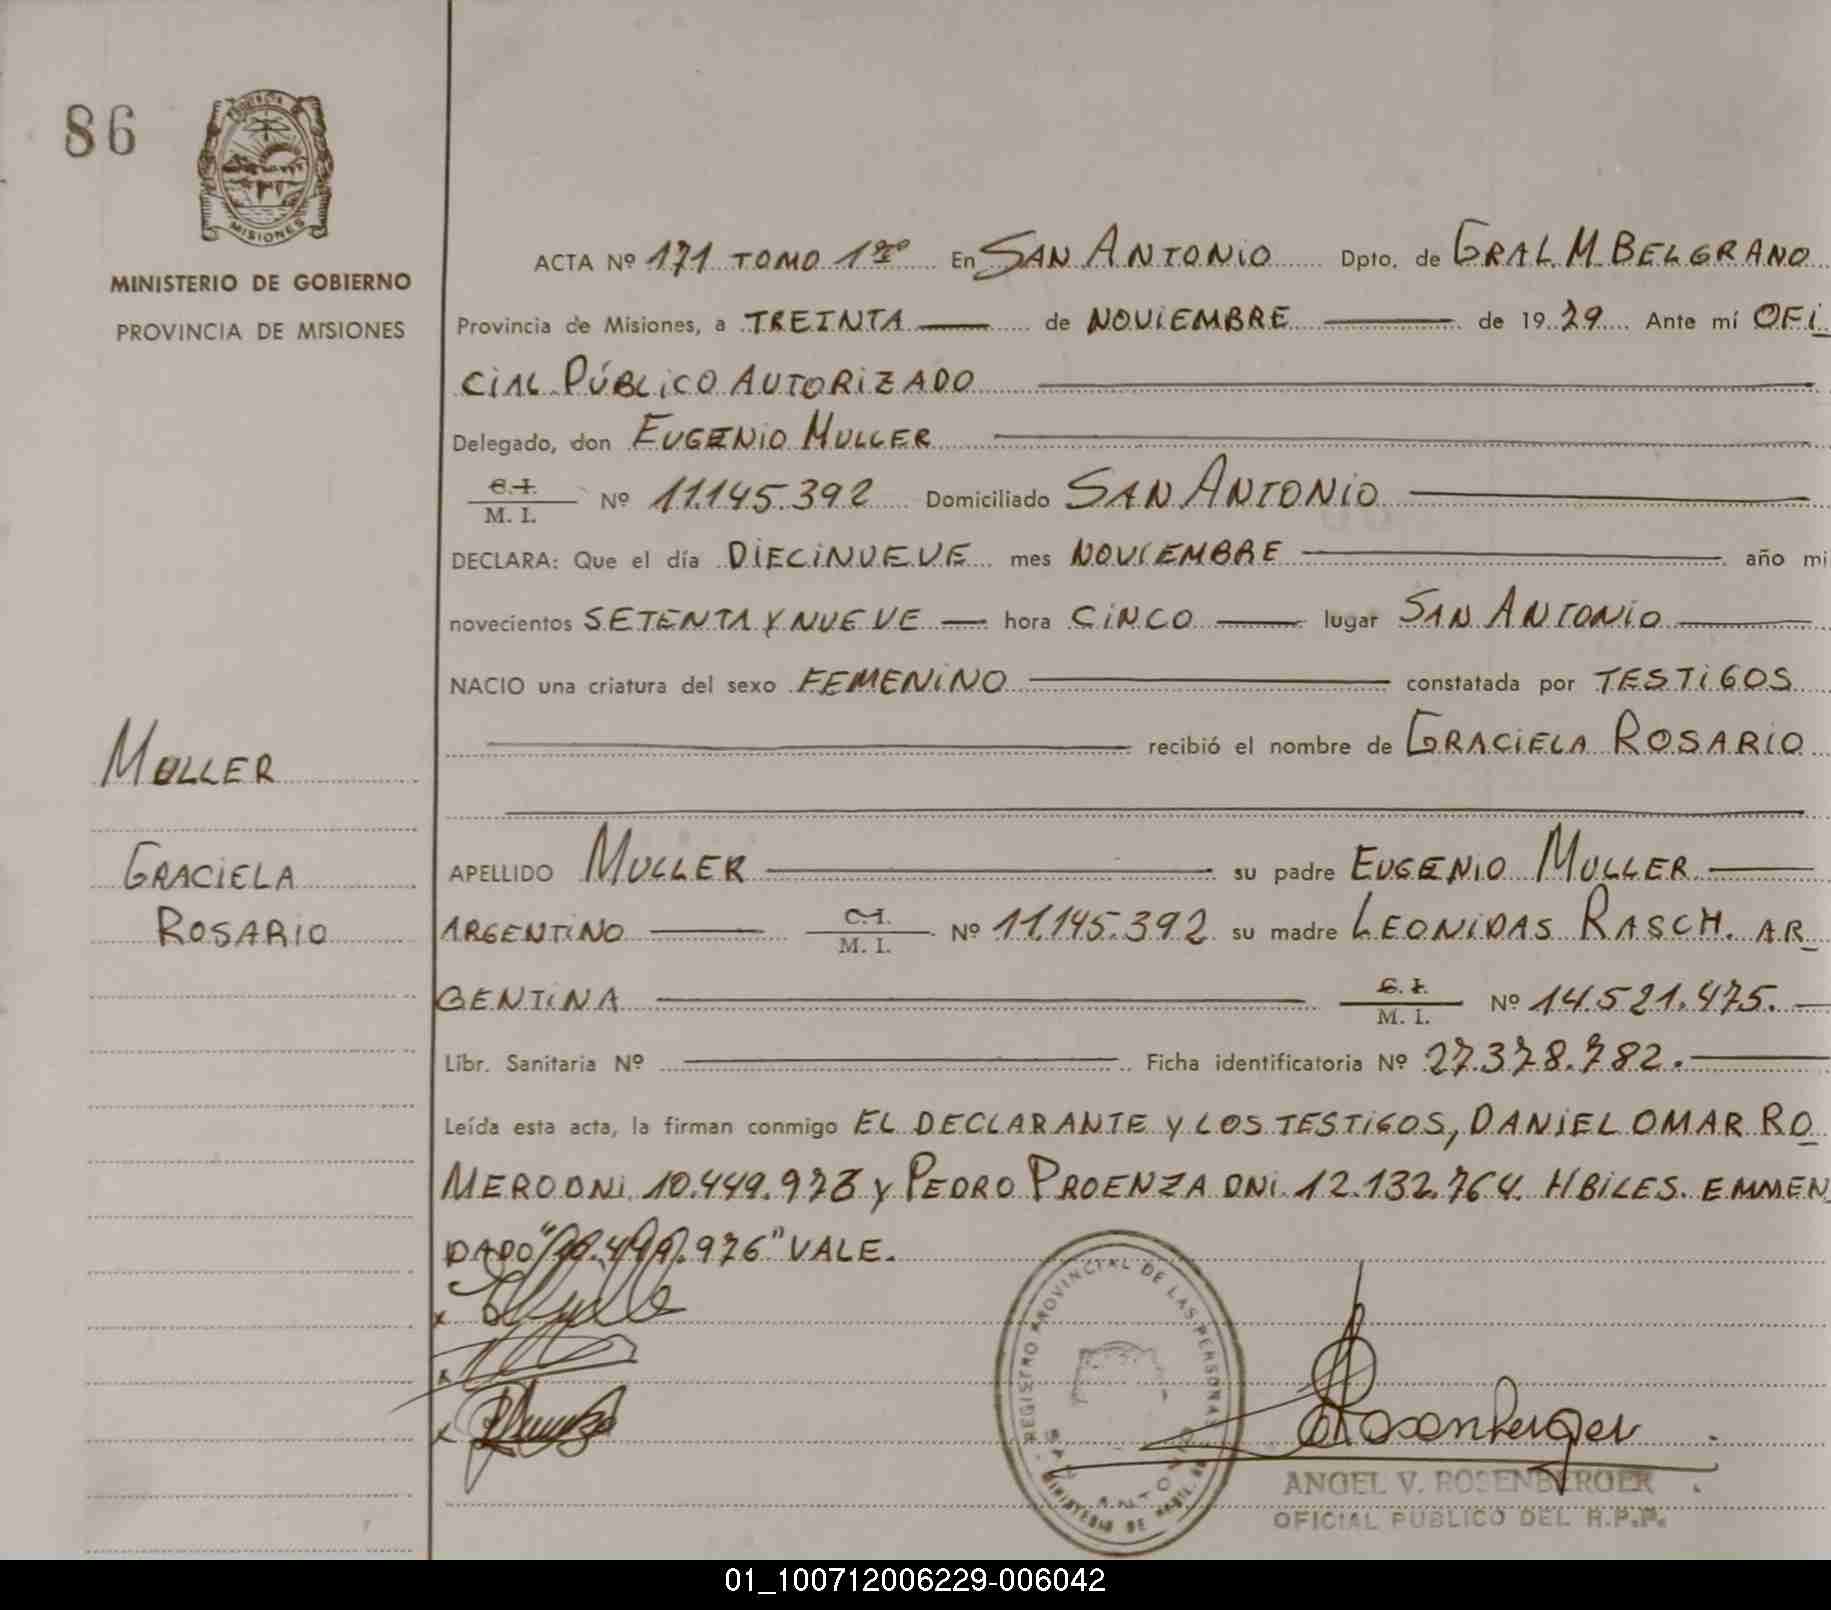 86
PROVINCIA DE
MISIONES
MINISTERIO DE GOBIERNO
PROVINCIA DE MISIONES
ACTA Nº 171 TOMO 1ro En SAN ANTONIO Dpto. de GRAL. M. BELGRANO
Provincia de Misiones, a TREINTA de NOVIEMBRE de 1979 Ante mí OFI
CIAL PÚBLICO AUTORIZADO
Delegado, don EUGENIO MULLER
C.I.
M. I. Nº 11.145.392 Domiciliado SAN ANTONIO
DECLARA: Que el día DIECINUEVE mes NOVIEMBRE año mi
novecientos SETENTA Y NUEVE hora CINCO lugar SAN ANTONIO
NACIO una criatura del sexo FEMENINO constatada por TESTIGOS
MULLER
recibió el nombre de GRACIELA ROSARIO
GRACIELA
ROSARIO
APELLIDO MULLER su padre EUGENIO MULLER
ARGENTINO C.I.
M. I. Nº 11.145.392 su madre LEONIDAS RASCH. AR
GENTINA C. I.
M. I. Nº 14.521.475.
Libr. Sanitaria Nº Ficha identificatoria Nº 27.378.782.
Leída esta acta, la firman conmigo EL DECLARANTE Y LOS TESTIGOS, DANIEL OMAR RO
MERO DNI. 10.449.976 y PEDRO PROENZA DNI. 12.132.764. HBILES. EMMEN
DADO "10.449.976" VALE.
REGISTRO PROVINCIAL DE LAS PERSONAS
SAN ANTONIO
MINISTERIO DE
Rosenberger
ANGEL V. ROSENBERGER
OFICIAL PUBLICO DEL R.P.P.
01_100712006229-006042